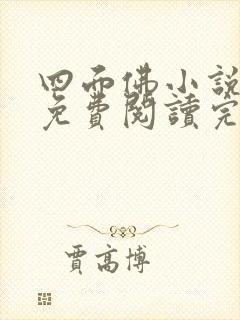 四面佛小說
免費閱讀完
賈高博